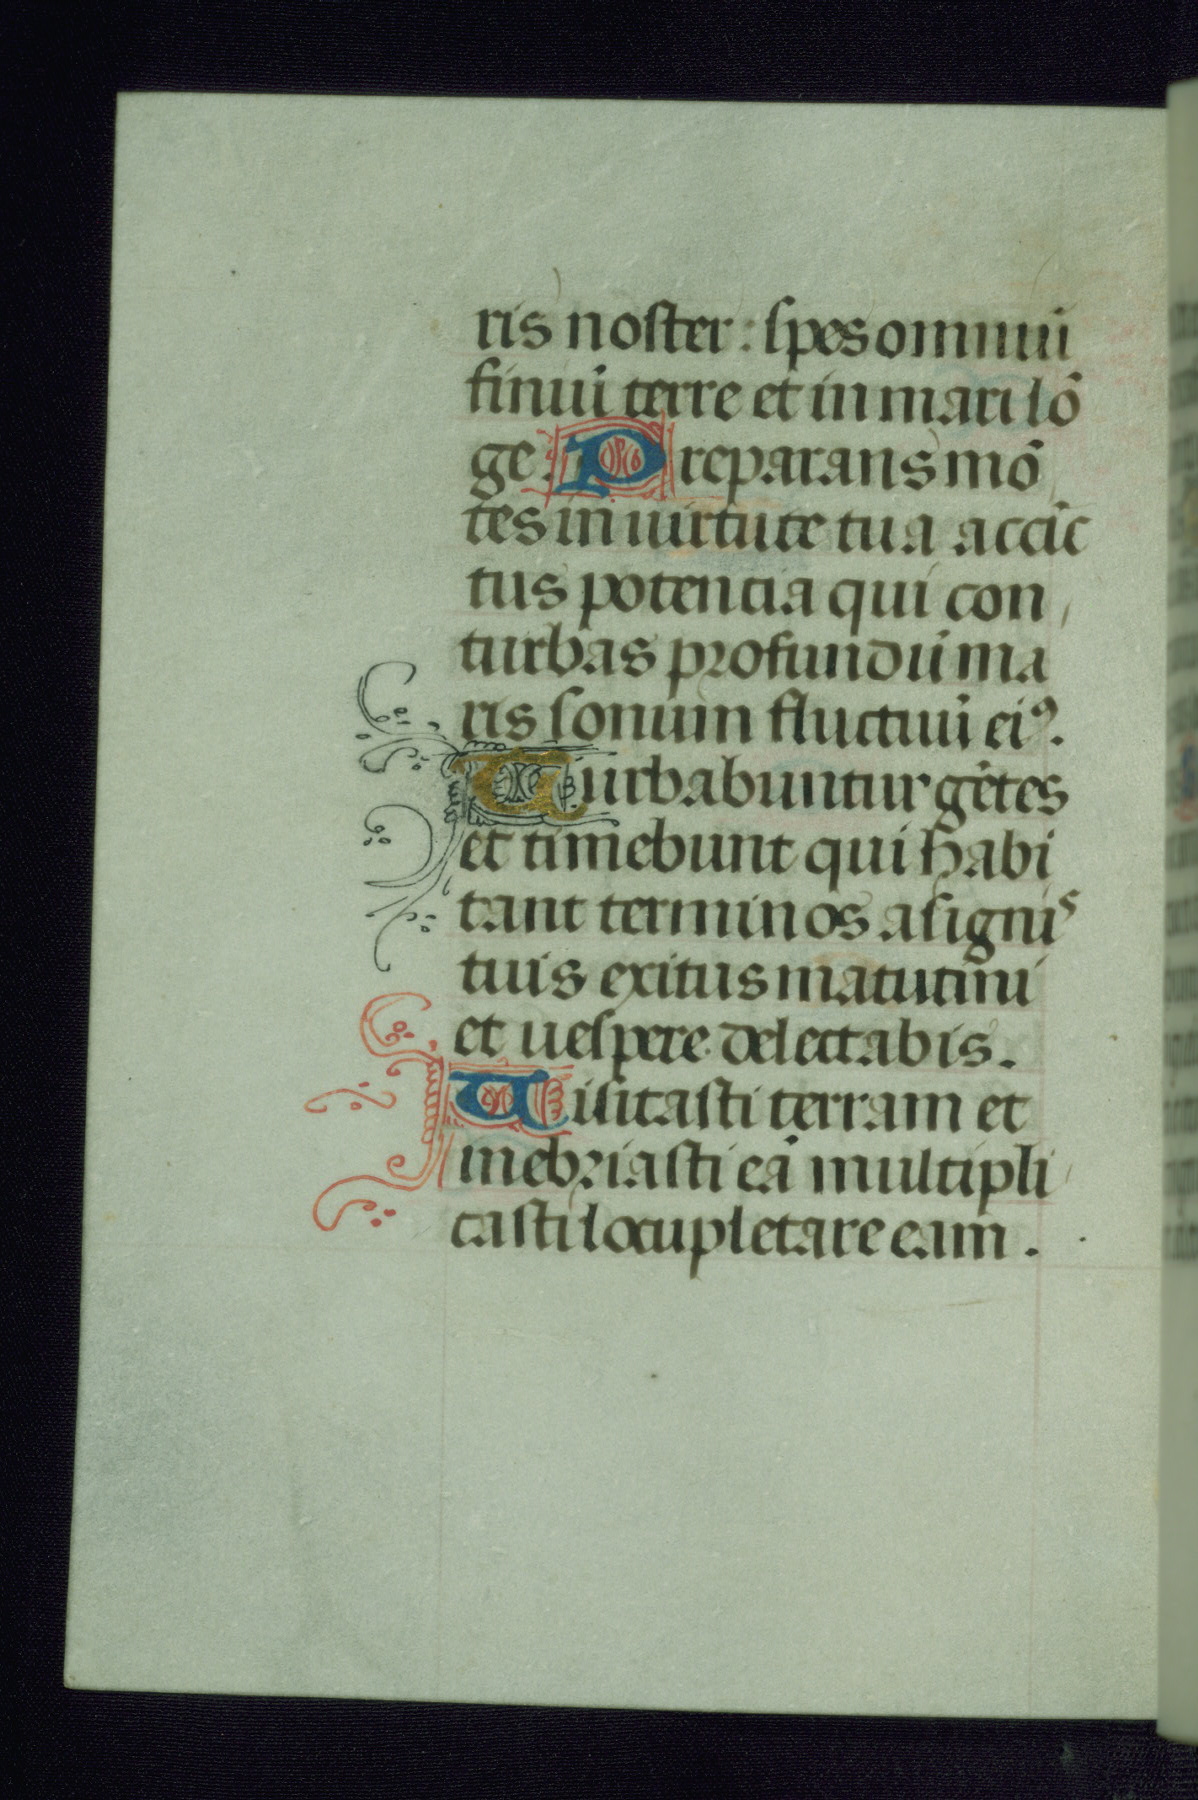 ris noster : spes omniuȝ
finiuȝ terre et in mari lō
ge. Preparans mō
tes in uirtute tua accīc
tus potencia qui con
turbas profundū ma
ris sonum fluctuū eiꝰ.
Turbabuntur gētes
et timebunt qui habi
tant terminos a signis
tuis exitus matutini
et uespere delectabis.
Uisitasti terram et
inebriasti eā multipli
casti locupletare eam .